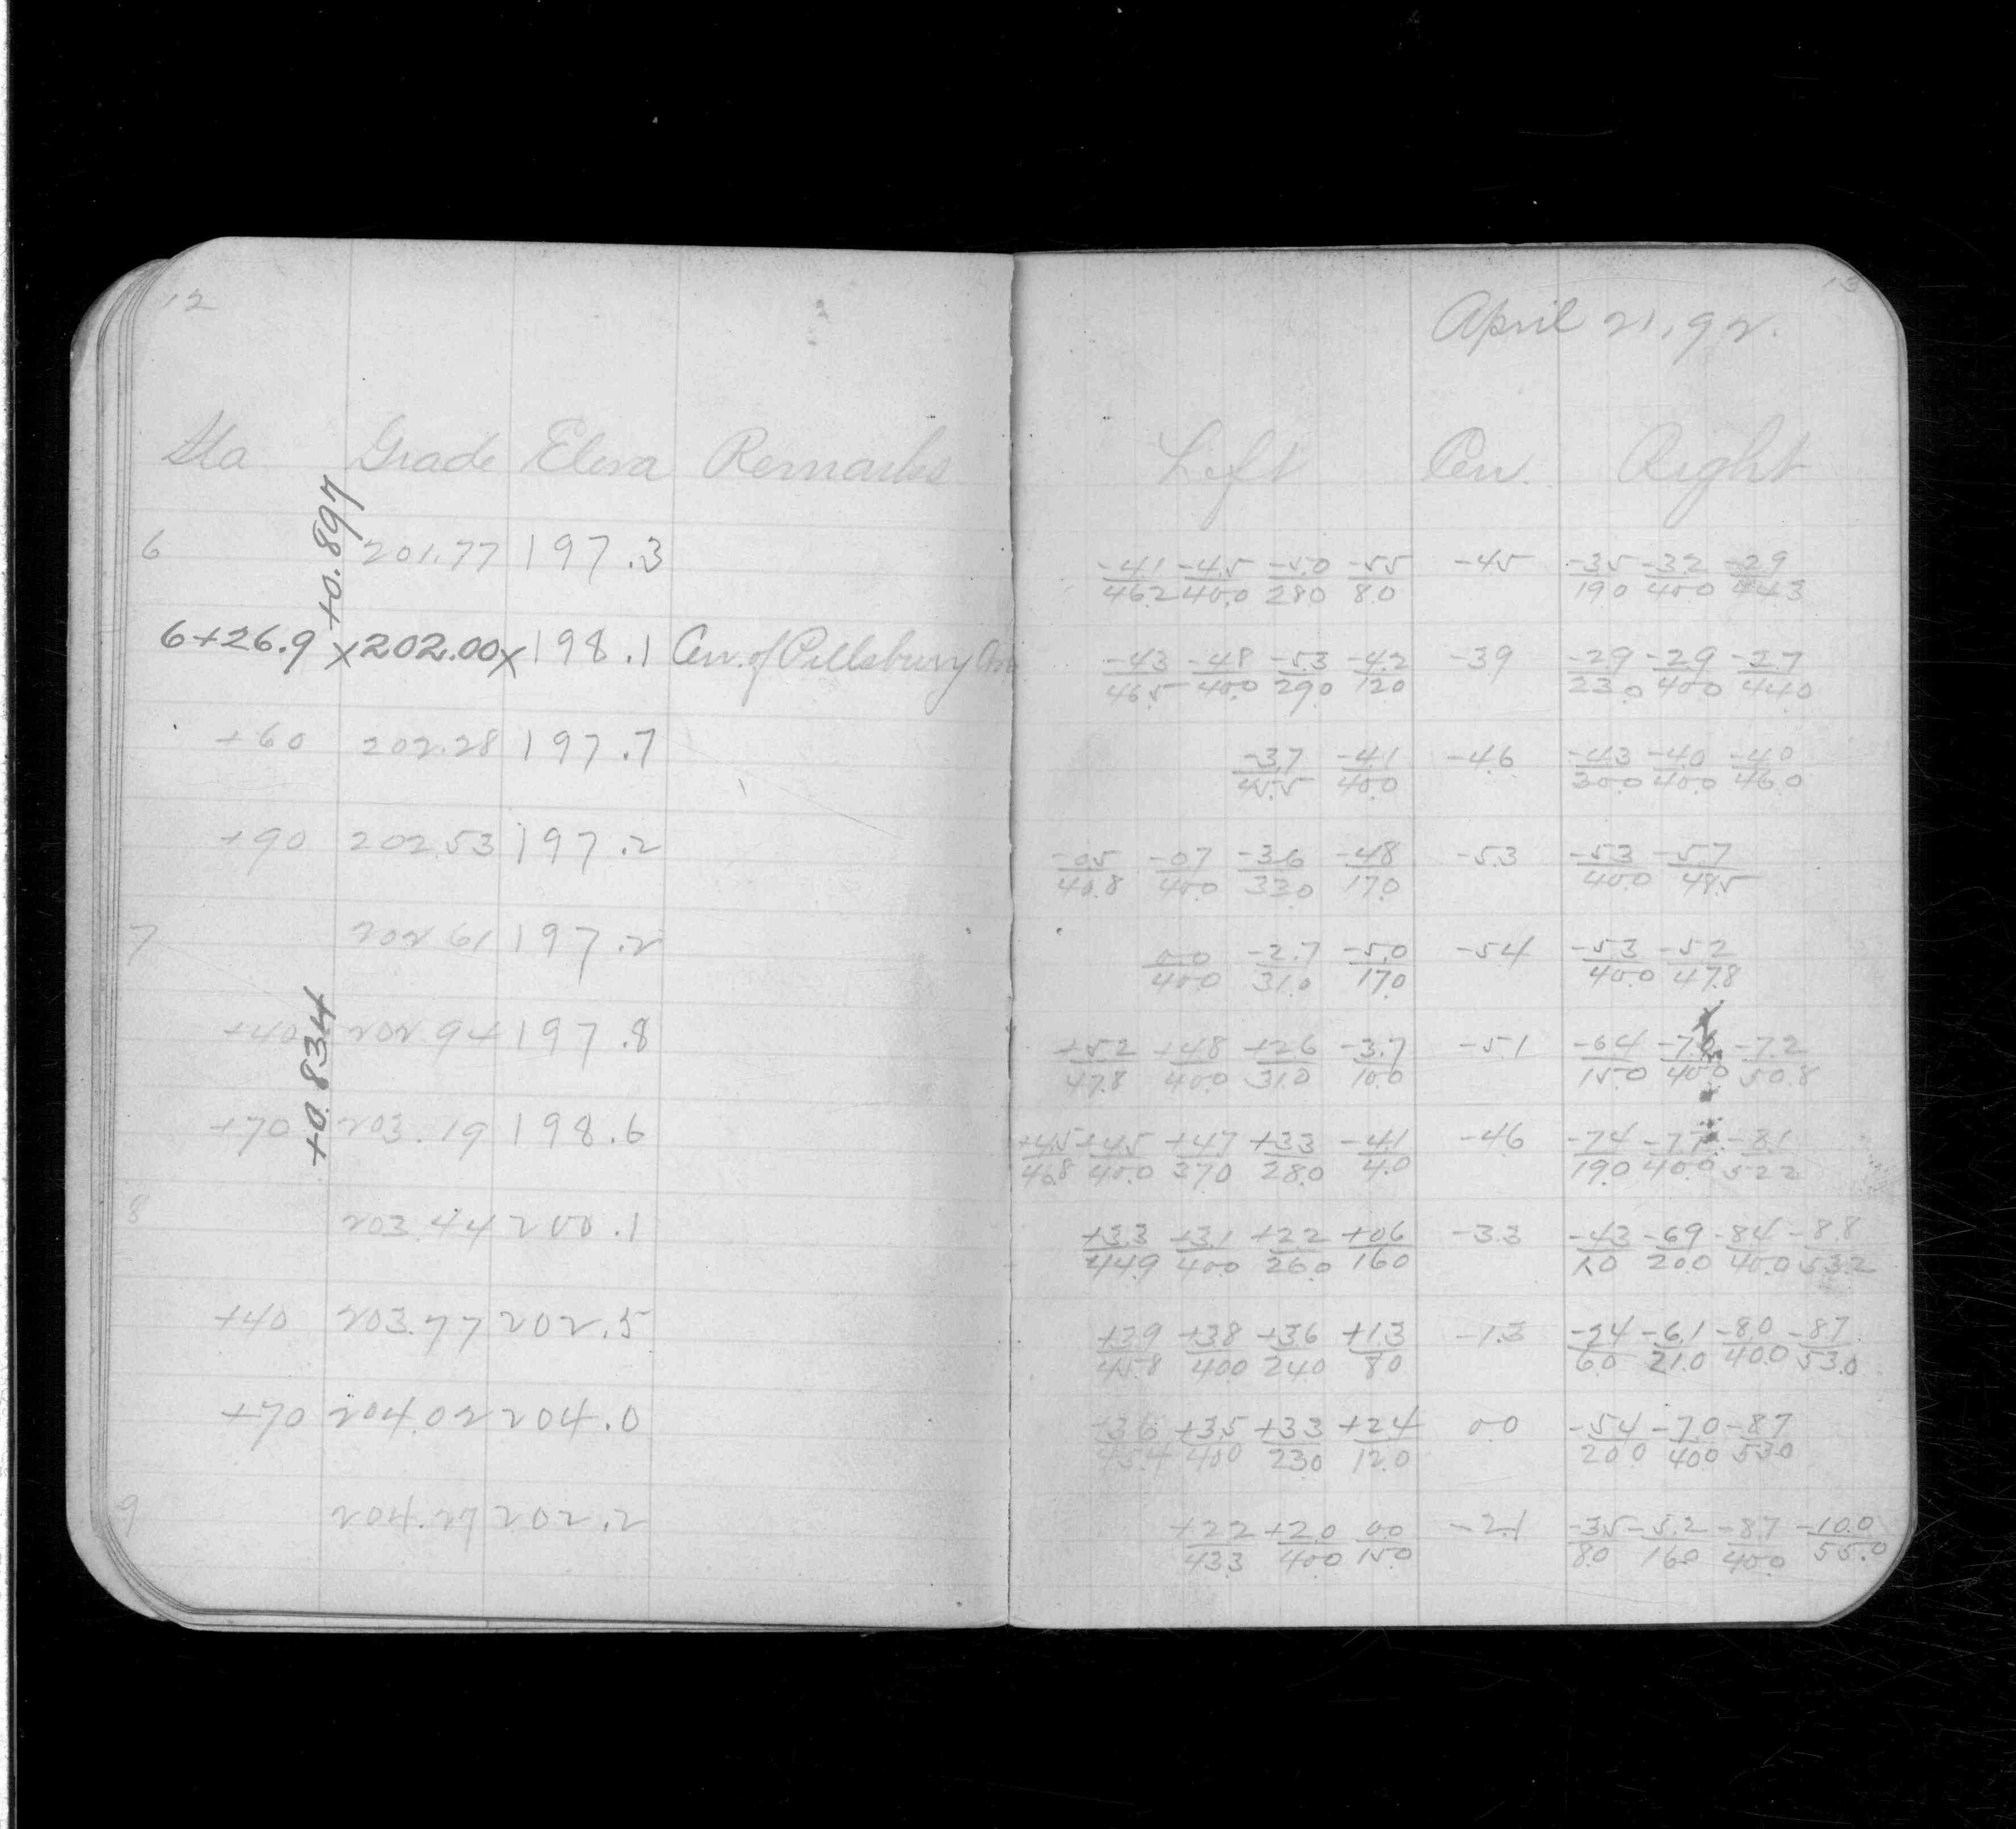 12
Sta Grade Eleva Remarks
+0.897
6 201.77 197.3
6+26.9 x 202.00 x 198.1 Cen. of Pillsbury Ave
+60 202.28 197.7
+90 202.53 197.2
7 202.61 197.2
+0.834
+40 202.94 197.8
+70 203.19 198.6
8 203.44 200.1
+40 203.77 202.5
+70 204.02 204.0
9 204.27 202.2
13
April 21, 92.
Left Cen. Right
-4.1 -4.5 -5.0 -5.5 -4.5 -3.5 -3.2 -2.9
46.2 40.0 28.0 8.0 19.0 40.0 44.3
-4.3 -4.8 -5.3 -4.2 -3.9 -2.9 -2.9 -2.7
46.5 40.0 29.0 12.0 23.0 40.0 44.0
-3.7 -4.1 -4.6 -4.3 -4.0 -4.0
45.5 40.0 30.0 40.0 46.0
-0.5 -0.7 -3.6 -4.8 -5.3 -5.3 -5.7
40.8 40.0 33.0 17.0 40.0 48.5
0.0 -2.7 -5.0 -5.4 -5.3 -5.2
40.0 31.0 17.0 40.0 47.8
+5.2 +4.8 +2.6 -3.7 -5.1 -6.4 -7.2
47.8 40.0 31.0 10.0 15.0 40.0 50.8
+4.5 +4.5 +4.7 +3.3 -4.1 -4.6 -7.4 -7.7 -8.1
46.8 40.0 37.0 28.0 4.0 19.0 40.0 52.2
+3.3 +3.1 +2.2 +0.6 -3.3 -4.3 -6.9 -8.4 -8.8
44.9 40.0 26.0 16.0 20.0 40.0 53.2
+3.9 +3.8 +3.6 +1.3 -1.3 -2.4 -6.1 -8.0 -8.7
45.8 40.0 24.0 8.0 6.0 21.0 40.0 53.0
+3.6 +3.5 +3.3 +2.4 0.0 -5.4 -7.0 -8.7
45.4 40.0 23.0 12.0 20.0 40.0 53.0
+2.2 +2.0 0.0 -2.1 -3.5 -5.2 -8.7 -10.0
43.3 40.0 15.0 8.0 16.0 40.0 55.0